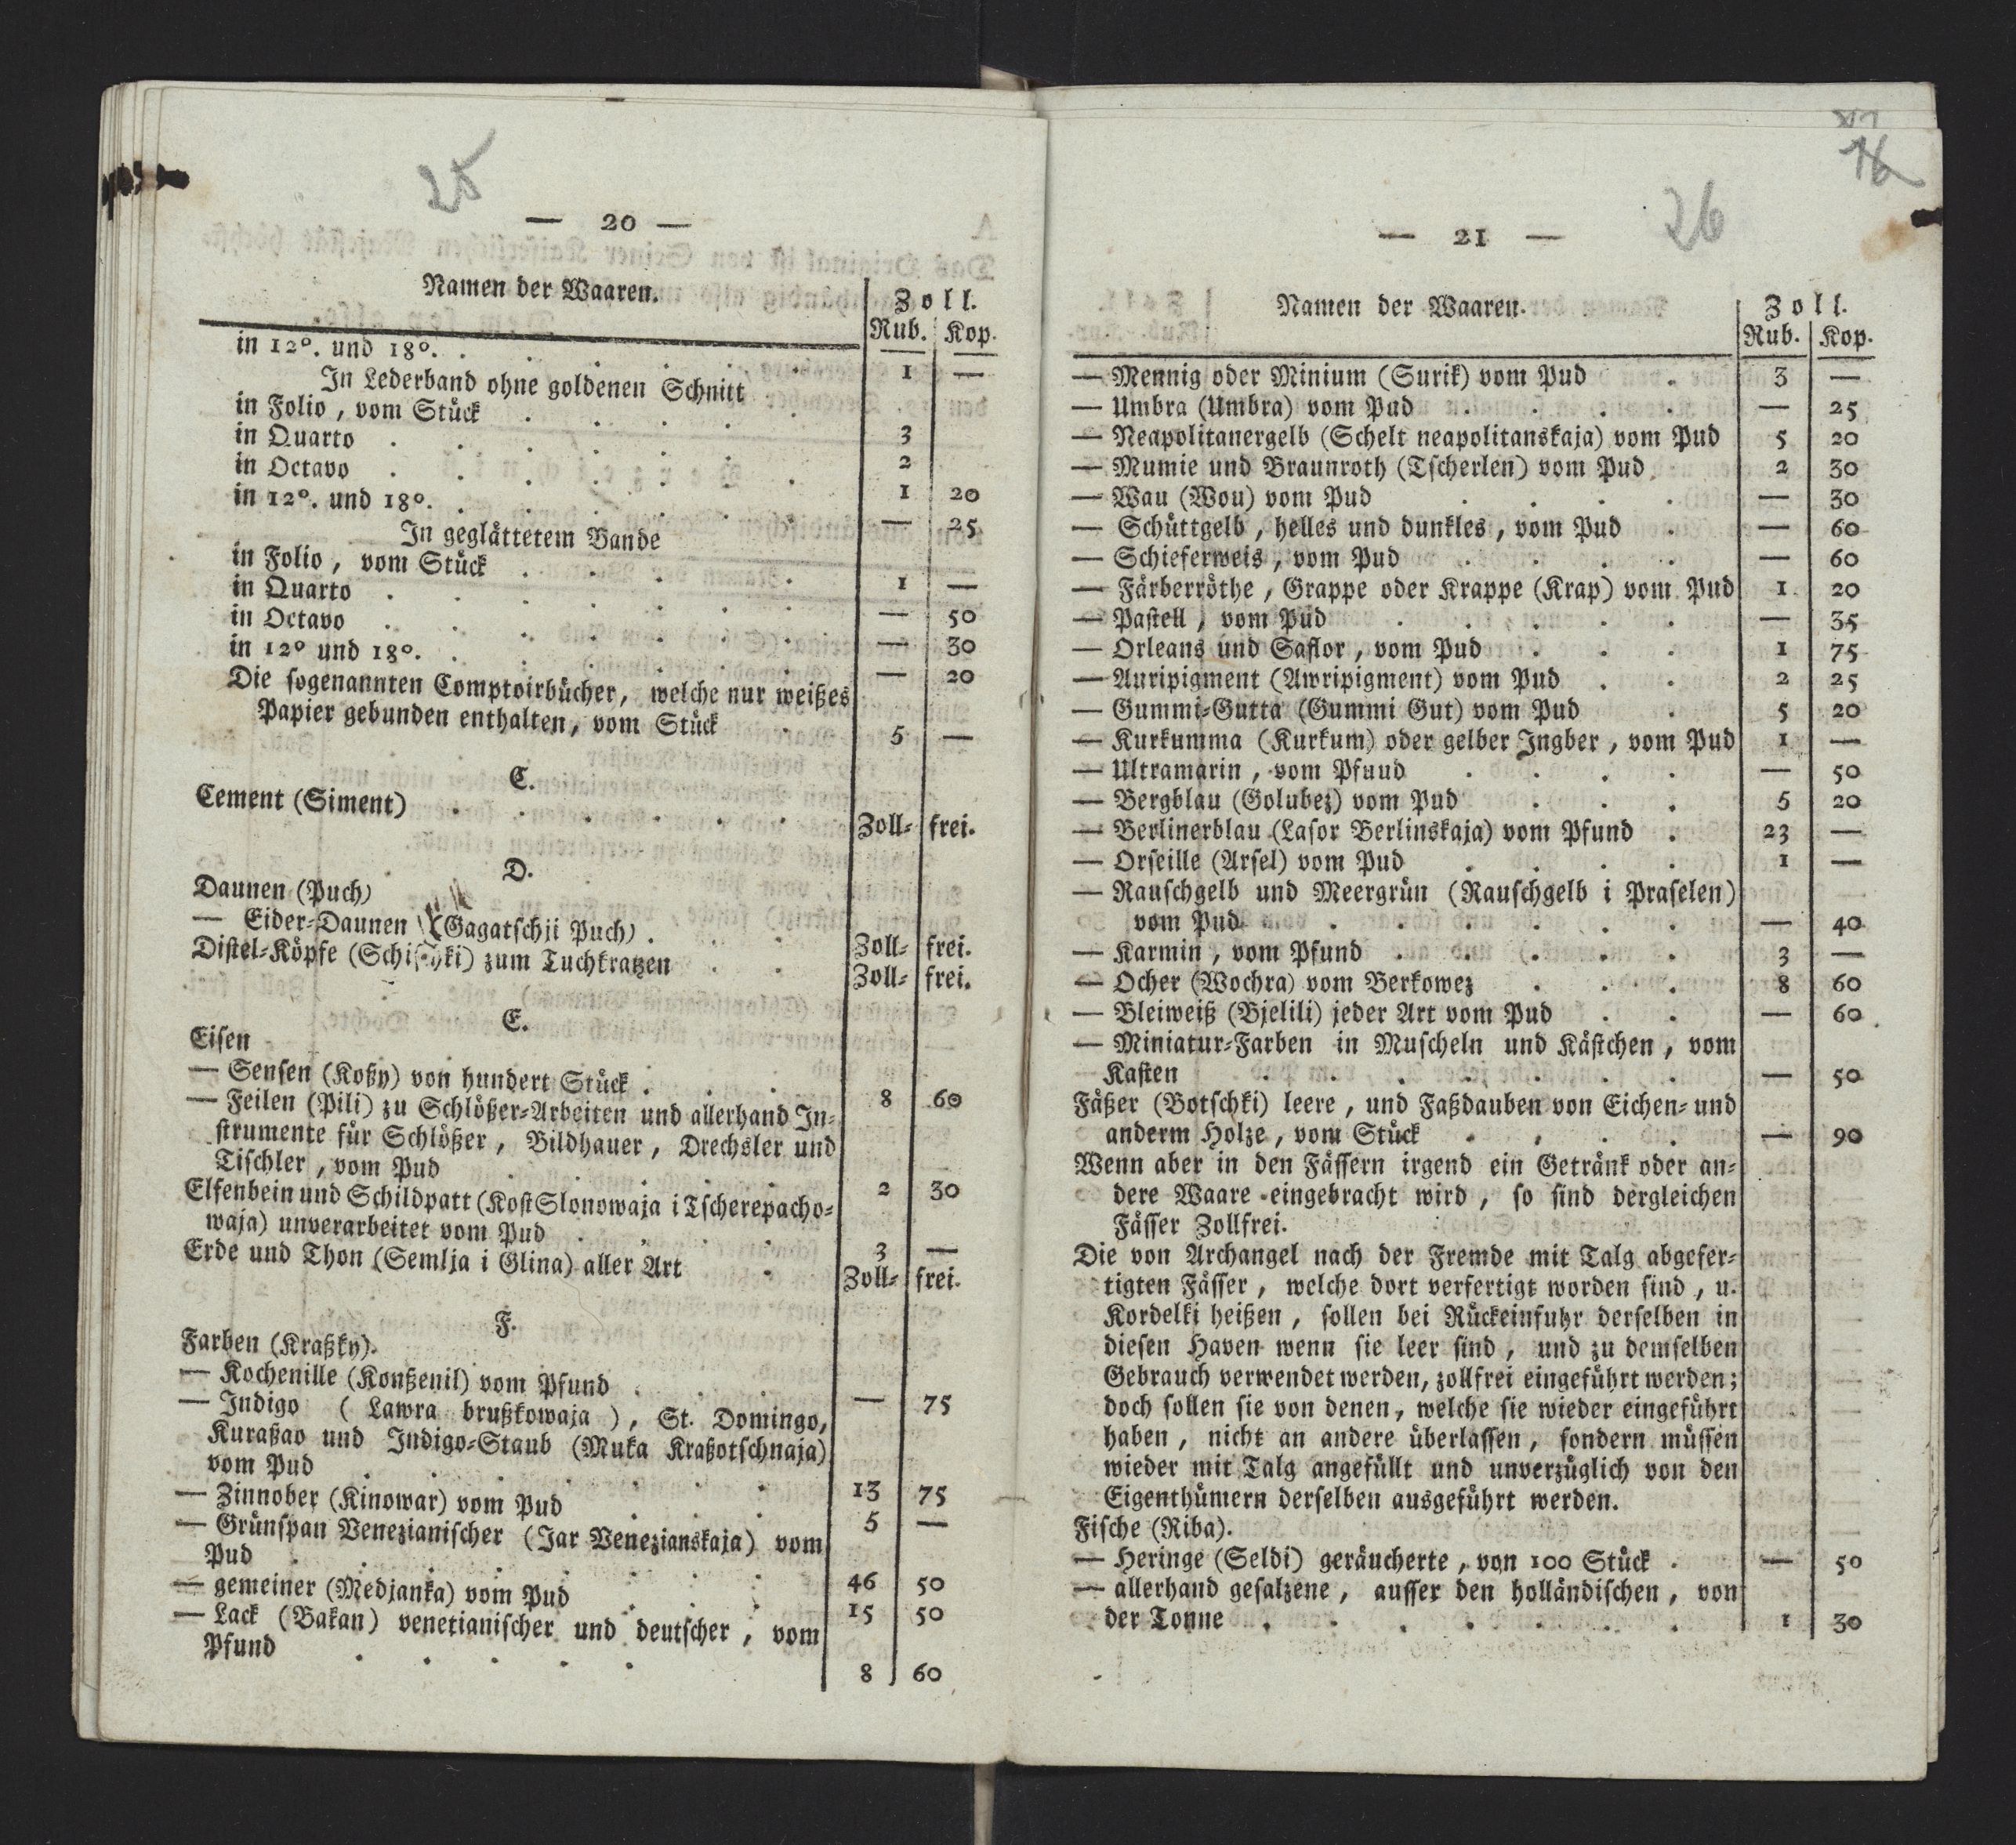 25
— 20 —
Namen der Waaren. Zoll.
Rub. Kop.
in 12°. und 18°. . . . . . 1 —
In Lederband ohne goldenen Schnitt
in Folio, vom Stück . . . . . 3
in Quarto . . . . . . 2
in Octavo . . . . . . 1 20
in 12°. und 18°. . . . . . — 25
In geglättetem Bande
in Folio, vom Stück . . . . . 1 —
in Quarto . . . . . . — 50
in Octavo . . . . . . — 30
in 12° und 18°. . . . . . — 20
Die sogenannten Comptoirbücher, welche nur weißes
Papier gebunden enthalten, vom Stück . 5 —
C.
Cement (Siment) . . . . . . Zoll- frei.
D.
Daunen (Puch)
— Eider-Daunen (Gagatschji Puch) . . . Zoll- frei.
Distel-Köpfe (Schischki) zum Tuchkratzen . . Zoll- frei.
E.
Eisen
— Sensen (Koßy) von hundert Stück . . . 8 60
— Feilen (Pili) zu Schlößer-Arbeiten und allerhand In-
strumente für Schlößer, Bildhauer, Drechsler und
Tischler, vom Pud . . . . . 2 30
Elfenbein und Schildpatt (Kost Slonowaja i Tscherepacho-
waja) unverarbeitet vom Pud . . . . 3 —
Erde und Thon (Semlja i Glina) aller Art . Zoll- frei.
F.
Farben (Kraßky).
— Kochenille (Konßenil) vom Pfund . . . . — 75
— Indigo (Lawra brußkowaja), St. Domingo,
Kuraßao und Indigo-Staub (Muka Kraßotschnaja)
vom Pud . . . . . . . 13 75
— Zinnober (Kinowar) vom Pud . . . 5 —
— Grünspan Venezianischer (Jar Venezianskaja) vom
Pud . . . . . . . 46 50
— gemeiner (Medjanka) vom Pud . . . 15 50
— Lack (Bakan) venetianischer und deutscher, vom
Pfund . . . . . 8 60
16
26
— 21 —
Namen der Waaren. Zoll.
Rub. Kop.
— Mennig oder Minium (Surik) vom Pud . 3 —
— Umbra (Umbra) vom Pud . . . . — 25
— Neapolitanergelb (Schelt neapolitanskaja) vom Pud 5 20
— Mumie und Braunroth (Tscherlen) vom Pud . 2 30
— Wau (Wou) vom Pud . . . . — 30
— Schüttgelb, helles und dunkles, vom Pud . — 60
— Schieferweis, vom Pud . . . . — 60
— Färberröthe, Grappe oder Krappe (Krap) vom Pud 1 20
— Pastell, vom Pud . . . . . — 35
— Orleans und Saflor, vom Pud . . . 1 75
— Auripigment (Awripigment) vom Pud . . 2 25
— Gummi-Gutta (Gummi Gut) vom Pud . 5 20
— Kurkumma (Kurkum) oder gelber Ingber, vom Pud 1 —
— Ultramarin, vom Pfuud . . . . — 50
— Bergblau (Golubez) vom Pud . . . 5 20
— Berlinerblau (Lasor Berlinskaja) vom Pfund . 23 —
— Orseille (Arsel) vom Pud . . . . 1 —
— Rauschgelb und Meergrün (Rauschgelb i Praselen)
vom Pud . . . . . . — 40
— Karmin, vom Pfund . . . . . 3 —
— Ocher (Wochra) vom Berkowez . . . 8 60
— Bleiweiß (Bjelili) jeder Art vom Pud . . — 60
— Miniatur-Farben in Muscheln und Kästchen, vom
Kasten . . . . . . . — 50
Fäßer (Botschki) leere, und Faßdauben von Eichen- und
anderm Holze, vom Stück . . . . — 90
Wenn aber in den Fässern irgend ein Getränk oder an-
dere Waare eingebracht wird, so sind dergleichen
Fässer Zollfrei.
Die von Archangel nach der Fremde mit Talg abgefer-
tigten Fässer, welche dort verfertigt worden sind, u.
Kordelki heißen, sollen bei Rückeinfuhr derselben in
diesen Haven wenn sie leer sind, und zu demselben
Gebrauch verwendet werden, zollfrei eingeführt werden;
doch sollen sie von denen, welche sie wieder eingeführt
haben, nicht an andere überlassen, sondern müssen
wieder mit Talg angefüllt und unverzüglich von den
Eigenthümern derselben ausgeführt werden.
Fische (Riba).
— Heringe (Seldi) geräucherte, von 100 Stück . — 50
— allerhand gesalzene, ausser den holländischen, von
der Tonne . . . . . . . 1 30